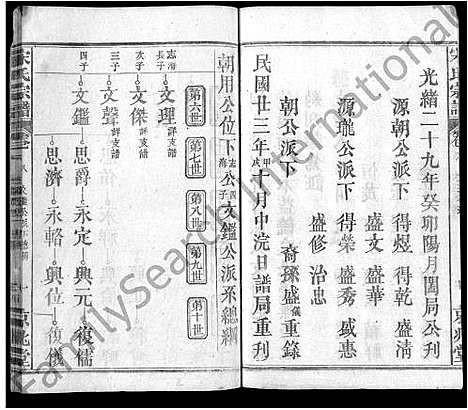 宋氏宗譜
光緒二十九年癸卯陽月闔局公刊
源朝公派下 得悠 盛感
源瓏公派下 得榮 盛秀
盛修 治忠
朝公派下 裔孫盛儀重錄
民國廿三年甲戌十月中浣日譜局重刊
京兆堂
朝用公位下志海公四子文鑑公派系總綱
第六世
第七世
第八世
第九世
第十世
志海長子 文理 詳支譜
次子 文傑 詳支譜
三子 文聲 詳支譜
四子 文鑑
思爵 永定 興元 復儒
思濟 永輅 興位 復儀
宋氏宗譜
京兆堂
FamilySearch International